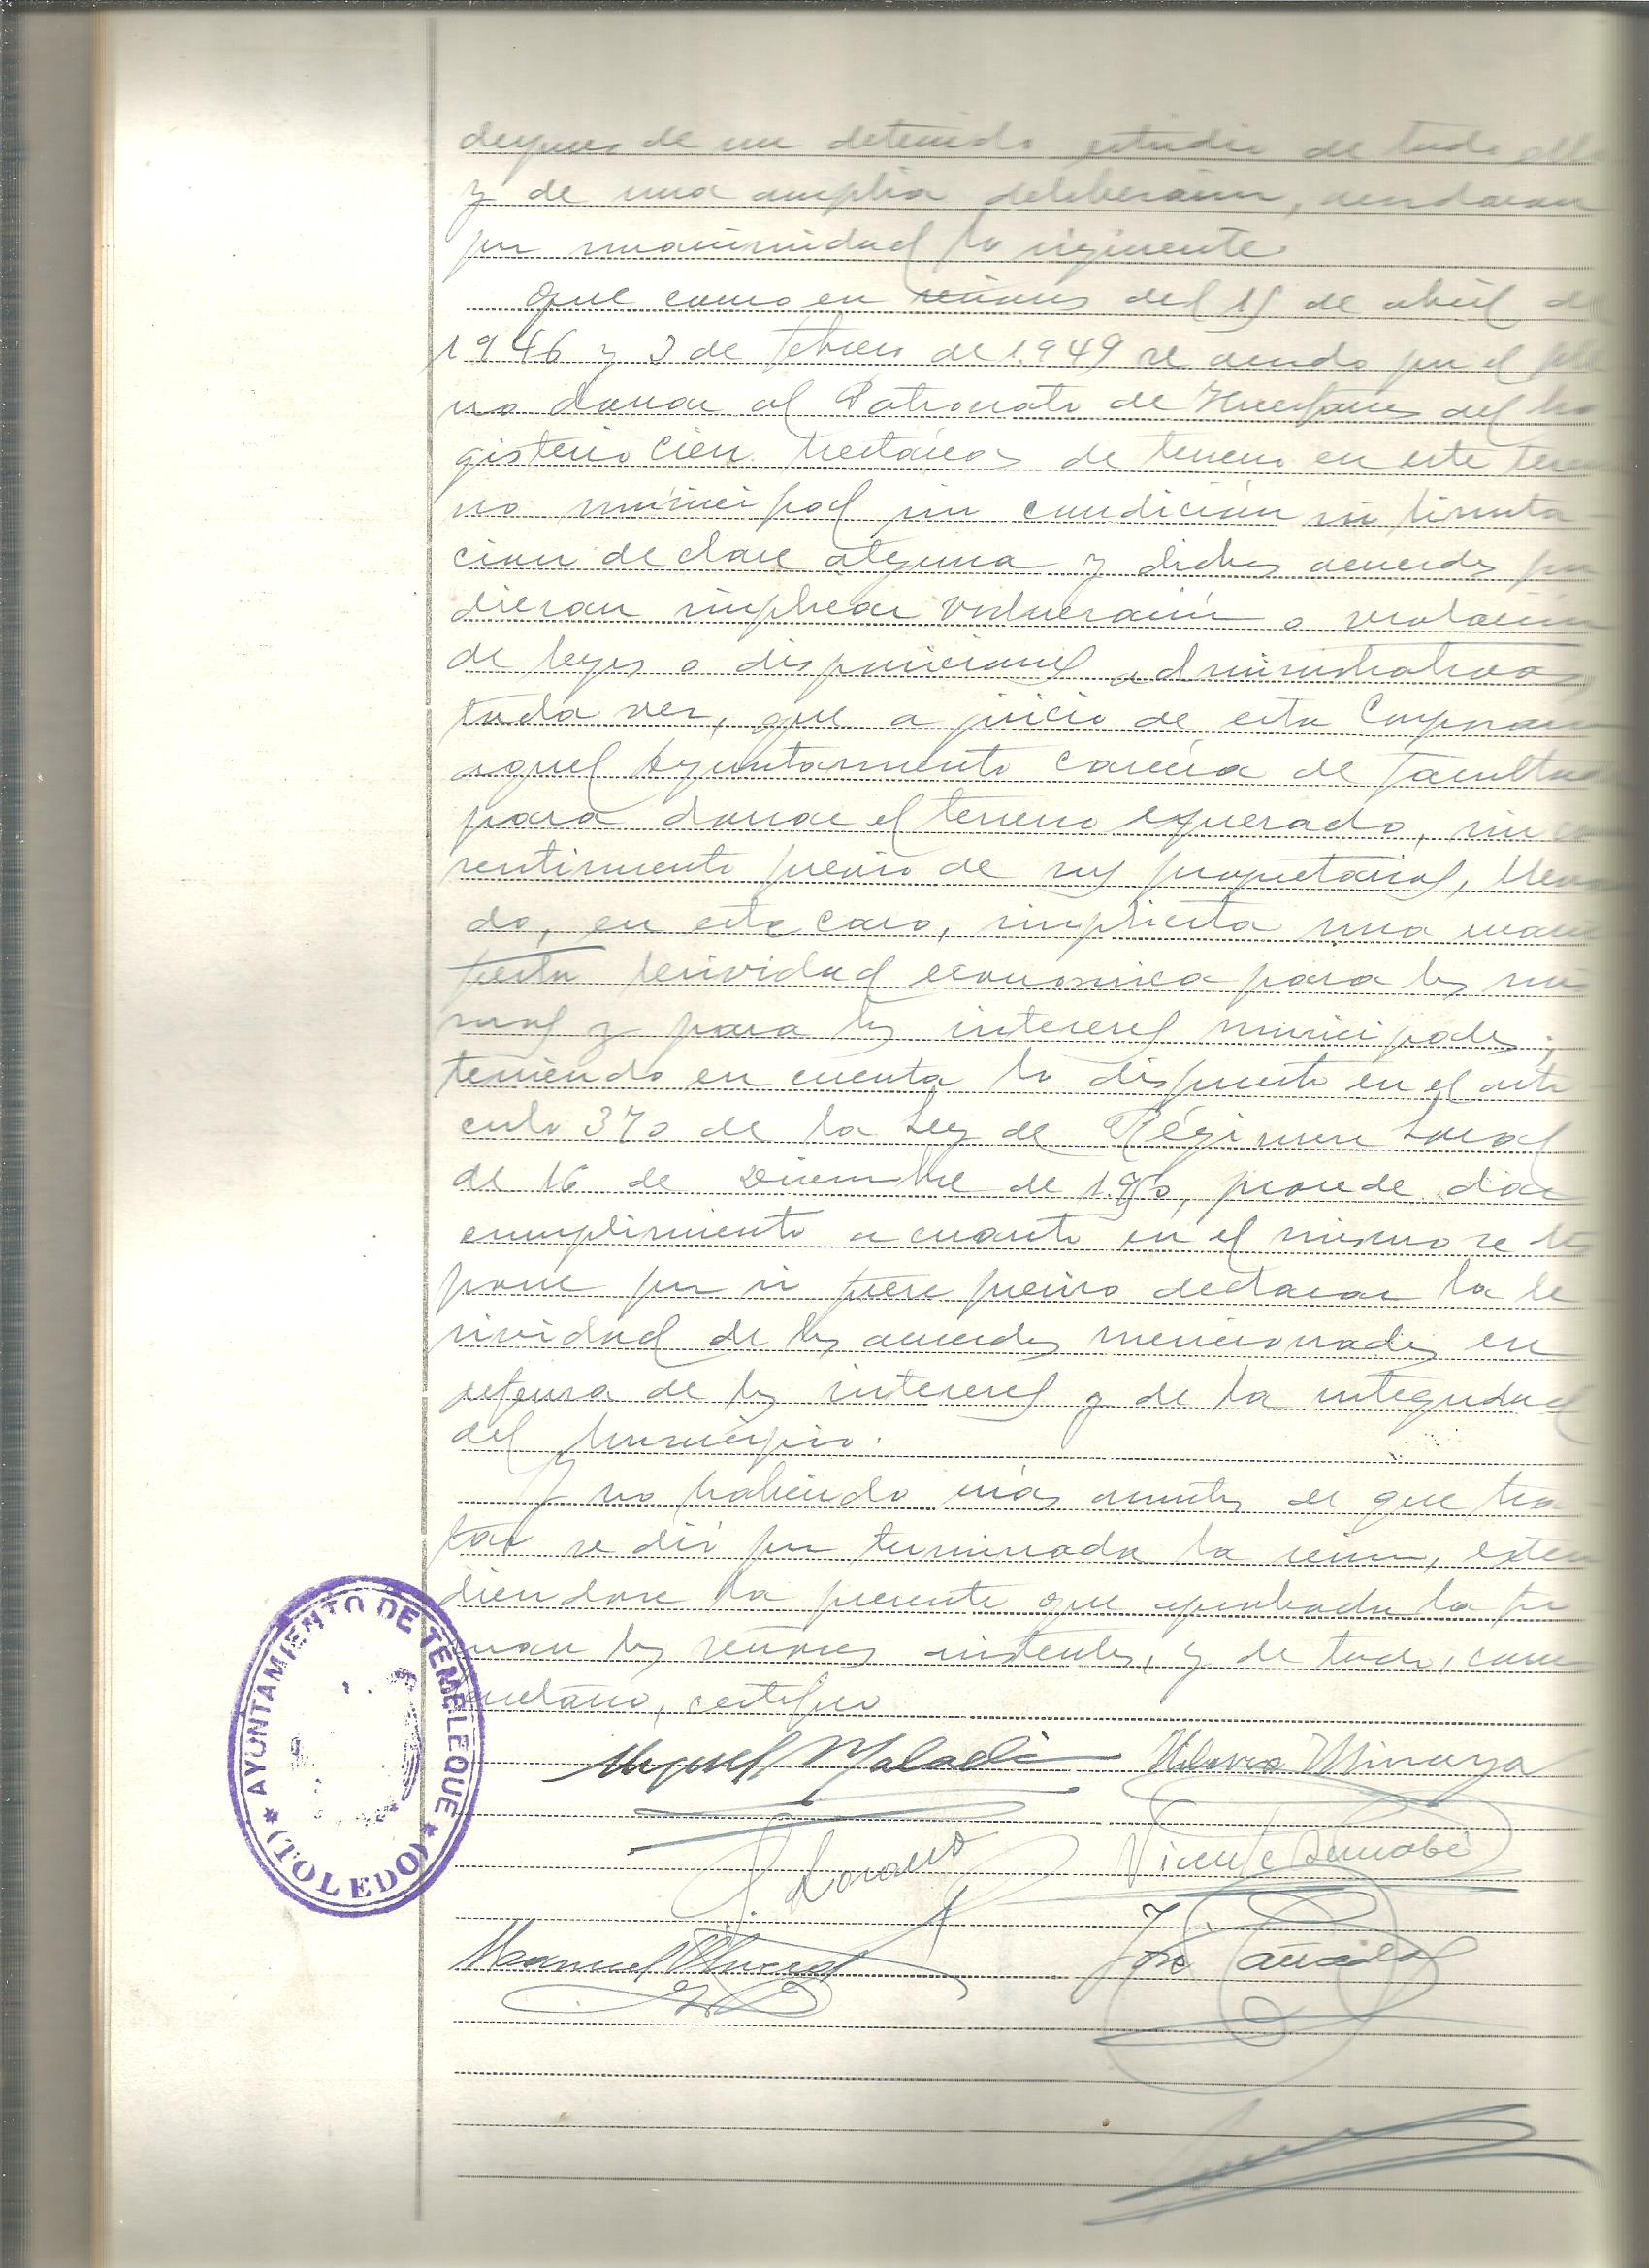 despues de un detenido estudio de todo ello
y de una amplia deliberación, acordaron
por unanimidad lo siguiente
Que como en sesiones del 15 de abril de
1946 y 3 de febrero de 1949 se acordo por el ple
no donar al Patronato de Huerfanos del Ma
gisterio cien hectáreas de terreno en este termi
no municipal sin condición ni limita-
cion de clase alguna y dichos acuerdos pu
dieran implicar vulneración o violación
de leyes o disposiciones administrativas
toda vez, que a juicio de esta Corporacion
aquel Ayuntamiento carecia de facultades
para donar el terreno expresado, sin con
sentimiento previo de sus propietarios, lleván
do, en este caso, implicita una mani
fiesta lesividad economica para los mis
mos y para los intereses municipales;
teniendo en cuenta lo dispuesto en el arti-
culo 370 de la Ley de Régimen Local
de 16 de Diciembre de 1950, procede dar
cumplimiento a cuanto en el mismo se dis
pone por si fuere preciso declarar la le-
sividad de los acuerdos mencionados en
defensa de los intereses y de la integridad
del Municipio.
Y no habiendo más asuntos de que tra-
tar se dió por terminada la sesion, exten
diendose la presente que aprobada la fir
man los señores asistentes, y de todo, como
secretario, certifico
Miguel Hilario Minaya
Lozano Vicente Bernabé
Manuel José
AYUNTAMIENTO DE TEMBLEQUE
* (TOLEDO) *